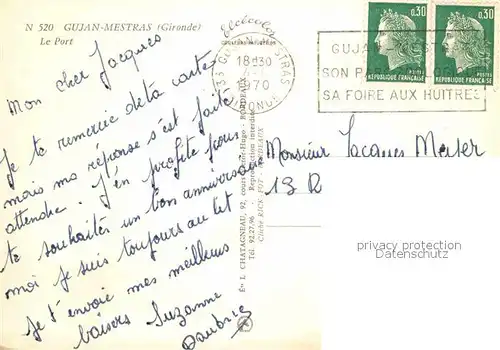 N 520 GUJAN-MESTRAS (Gironde)
Le Port
Mon cher Jacques
Je te remercie de ta carte
mais ma réponse s'est faite
attendre. J'en profite pour
te souhaiter un bon anniversaire
moi je suis toujours au lit
Je t'envoie mes meilleurs
baisers Suzanne
18H30
1970
GIRONDE
GUJAN
SON P
SA FOIRE AUX HUITRES
0,30
REPUBLIQUE FRANÇAISE
0,30
REPUBLIQUE FRANÇAISE
Monsieur Jacques
13 R
Ets L. CHATAGNEAU, 92, cours Victor-Hugo - BORDEAUX
Tél. 92.27.96 - Reproduction interdite
privacy protection
Datenschutz